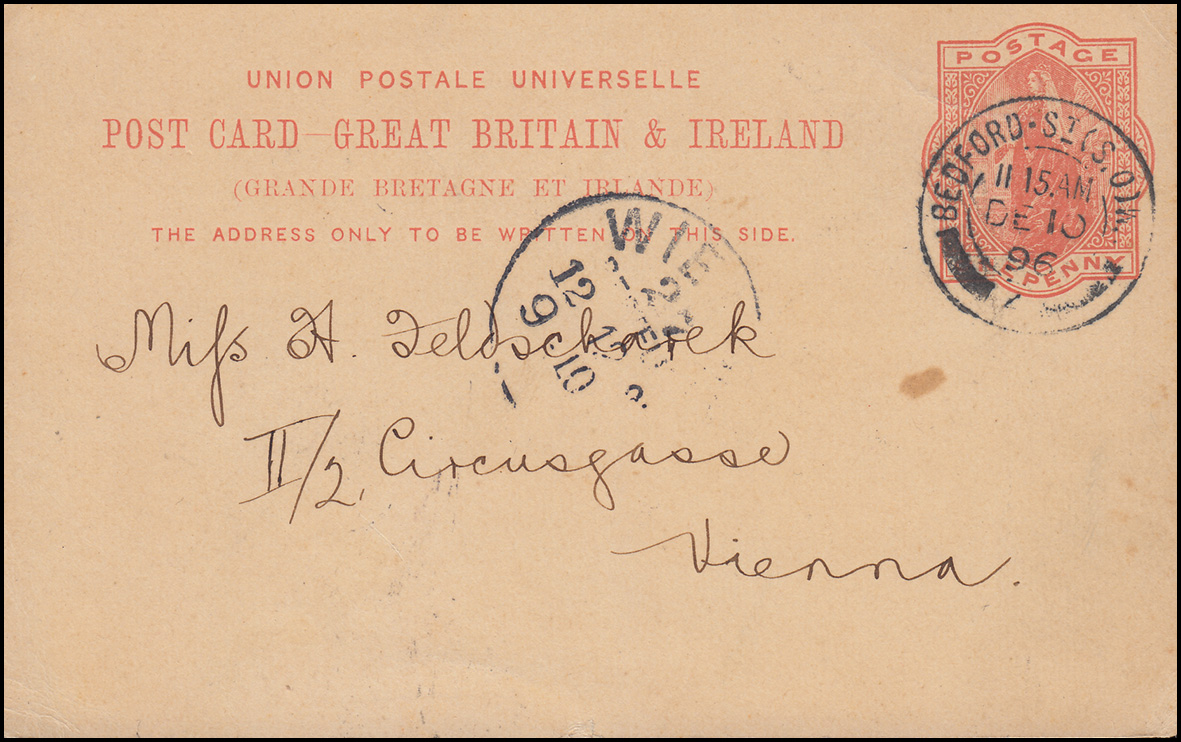 UNION POSTALE UNIVERSELLE
POST CARD—GREAT BRITAIN & IRELAND
(GRANDE BRETAGNE ET IRLANDE)
THE ADDRESS ONLY TO BE WRITTEN ON THIS SIDE.
POSTAGE
PENNY
BEDFORD
11 15 AM
DE 10
96
WIE
12 12
9
Miſs H. Feldscharek
II/2, Circusgasse
Vienna.